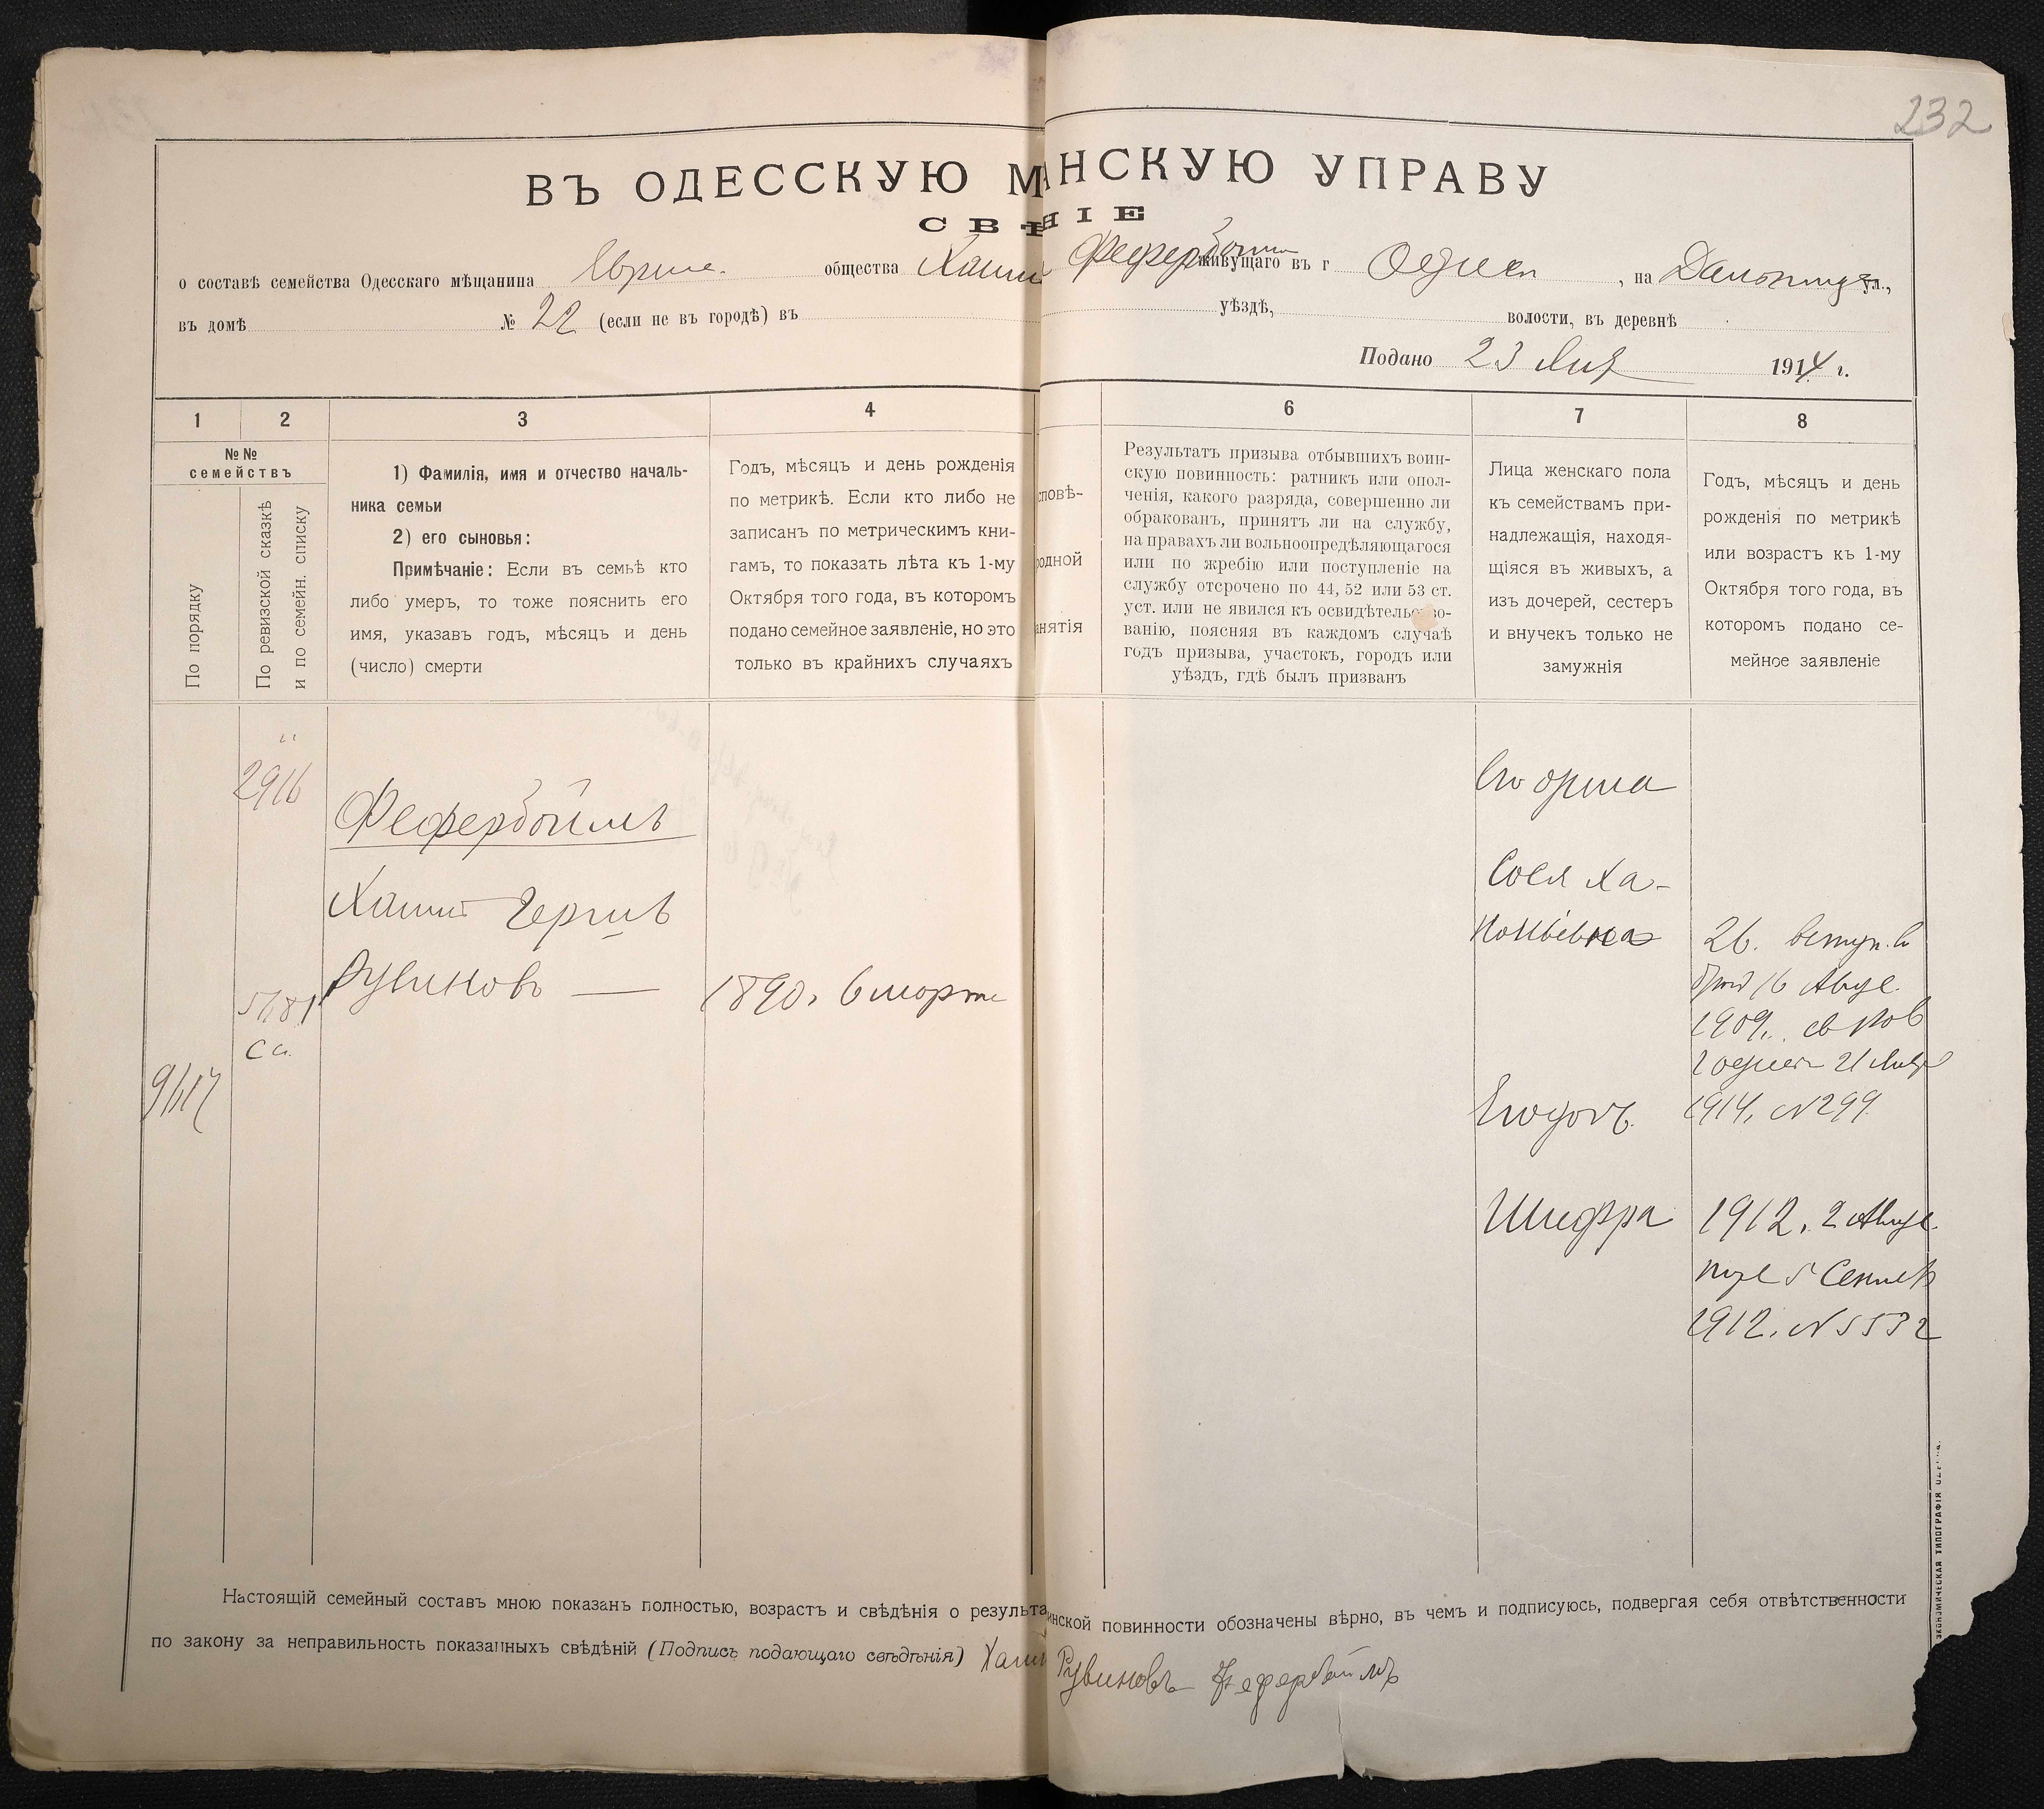 232
ВЪ ОДЕССКУЮ М НСКУЮ УПРАВУ
СВѢ НІЕ
о составѣ семейства Одесскаго мѣщанина общества Хаим Фефербойм живущаго въ г Одесса, на ул.,
въ домѣ № 22 (если не въ городѣ) въ уѣздѣ, волости, въ деревнѣ
Подано 23 Янв 1914 г.
1 2 3 4 6 7 8
№№
семействъ
По порядку
По ревизской сказкѣ
и по семейн. списку
1) Фамилія, имя и отчество началь-
ника семьи
2) его сыновья:
Примѣчаніе: Если въ семьѣ кто
либо умеръ, то тоже пояснить его
имя, указавъ годъ, мѣсяцъ и день
(число) смерти
Годъ, мѣсяцъ и день рожденія
по метрикѣ. Если кто либо не
записанъ по метрическимъ кни-
гамъ, то показать лѣта къ 1-му
Октября того года, въ которомъ
подано семейное заявленіе, но это
только въ крайнихъ случаяхъ
сповѣ-
одной
анятія
Результатъ призыва отбывшихъ воин-
скую повинность: ратникъ или опол-
ченія, какого разряда, совершенно ли
обракованъ, принятъ ли на службу,
на правахъ ли вольноопредѣляющагося
или по жребію или поступленіе на
службу отсрочено по 44, 52 или 53 ст.
уст. или не явился къ освидѣтельство-
ванію, поясняя въ каждомъ случаѣ
годъ призыва, участокъ, городъ или
уѣздъ, гдѣ былъ призванъ
Лица женскаго пола
къ семействамъ при-
надлежащія, находя-
щіяся въ живыхъ, а
изъ дочерей, сестеръ
и внучекъ только не
замужнія
Годъ, мѣсяцъ и день
рожденія по метрикѣ
или возрастъ къ 1-му
Октября того года, въ
которомъ подано се-
мейное заявленіе
2916
Фефербоймъ
Хаимъ Гершъ
Рувиновъ — 1890. 6 марта
5781
Сс.
Его
Сося Ха-
26. вступ. въ
16 Авгус.
1909. св
21 Янв
1914. № 299
Его дочь
Шифра 1912. 2 Авгус.
5 Сентяб
1912. № 5532
Настоящій семейный составъ мною показанъ полностью, возрастъ и свѣдѣнія о результа инской повинности обозначены вѣрно, въ чемъ и подписуюсь, подвергая себя отвѣтственности
по закону за неправильность показанныхъ свѣдѣній (Подпись подающаго свѣдѣнія) Хаим Рувиновъ Фефербоймъ
ЭКОНОМИЧЕСКАЯ ТИПОГРАФІЯ